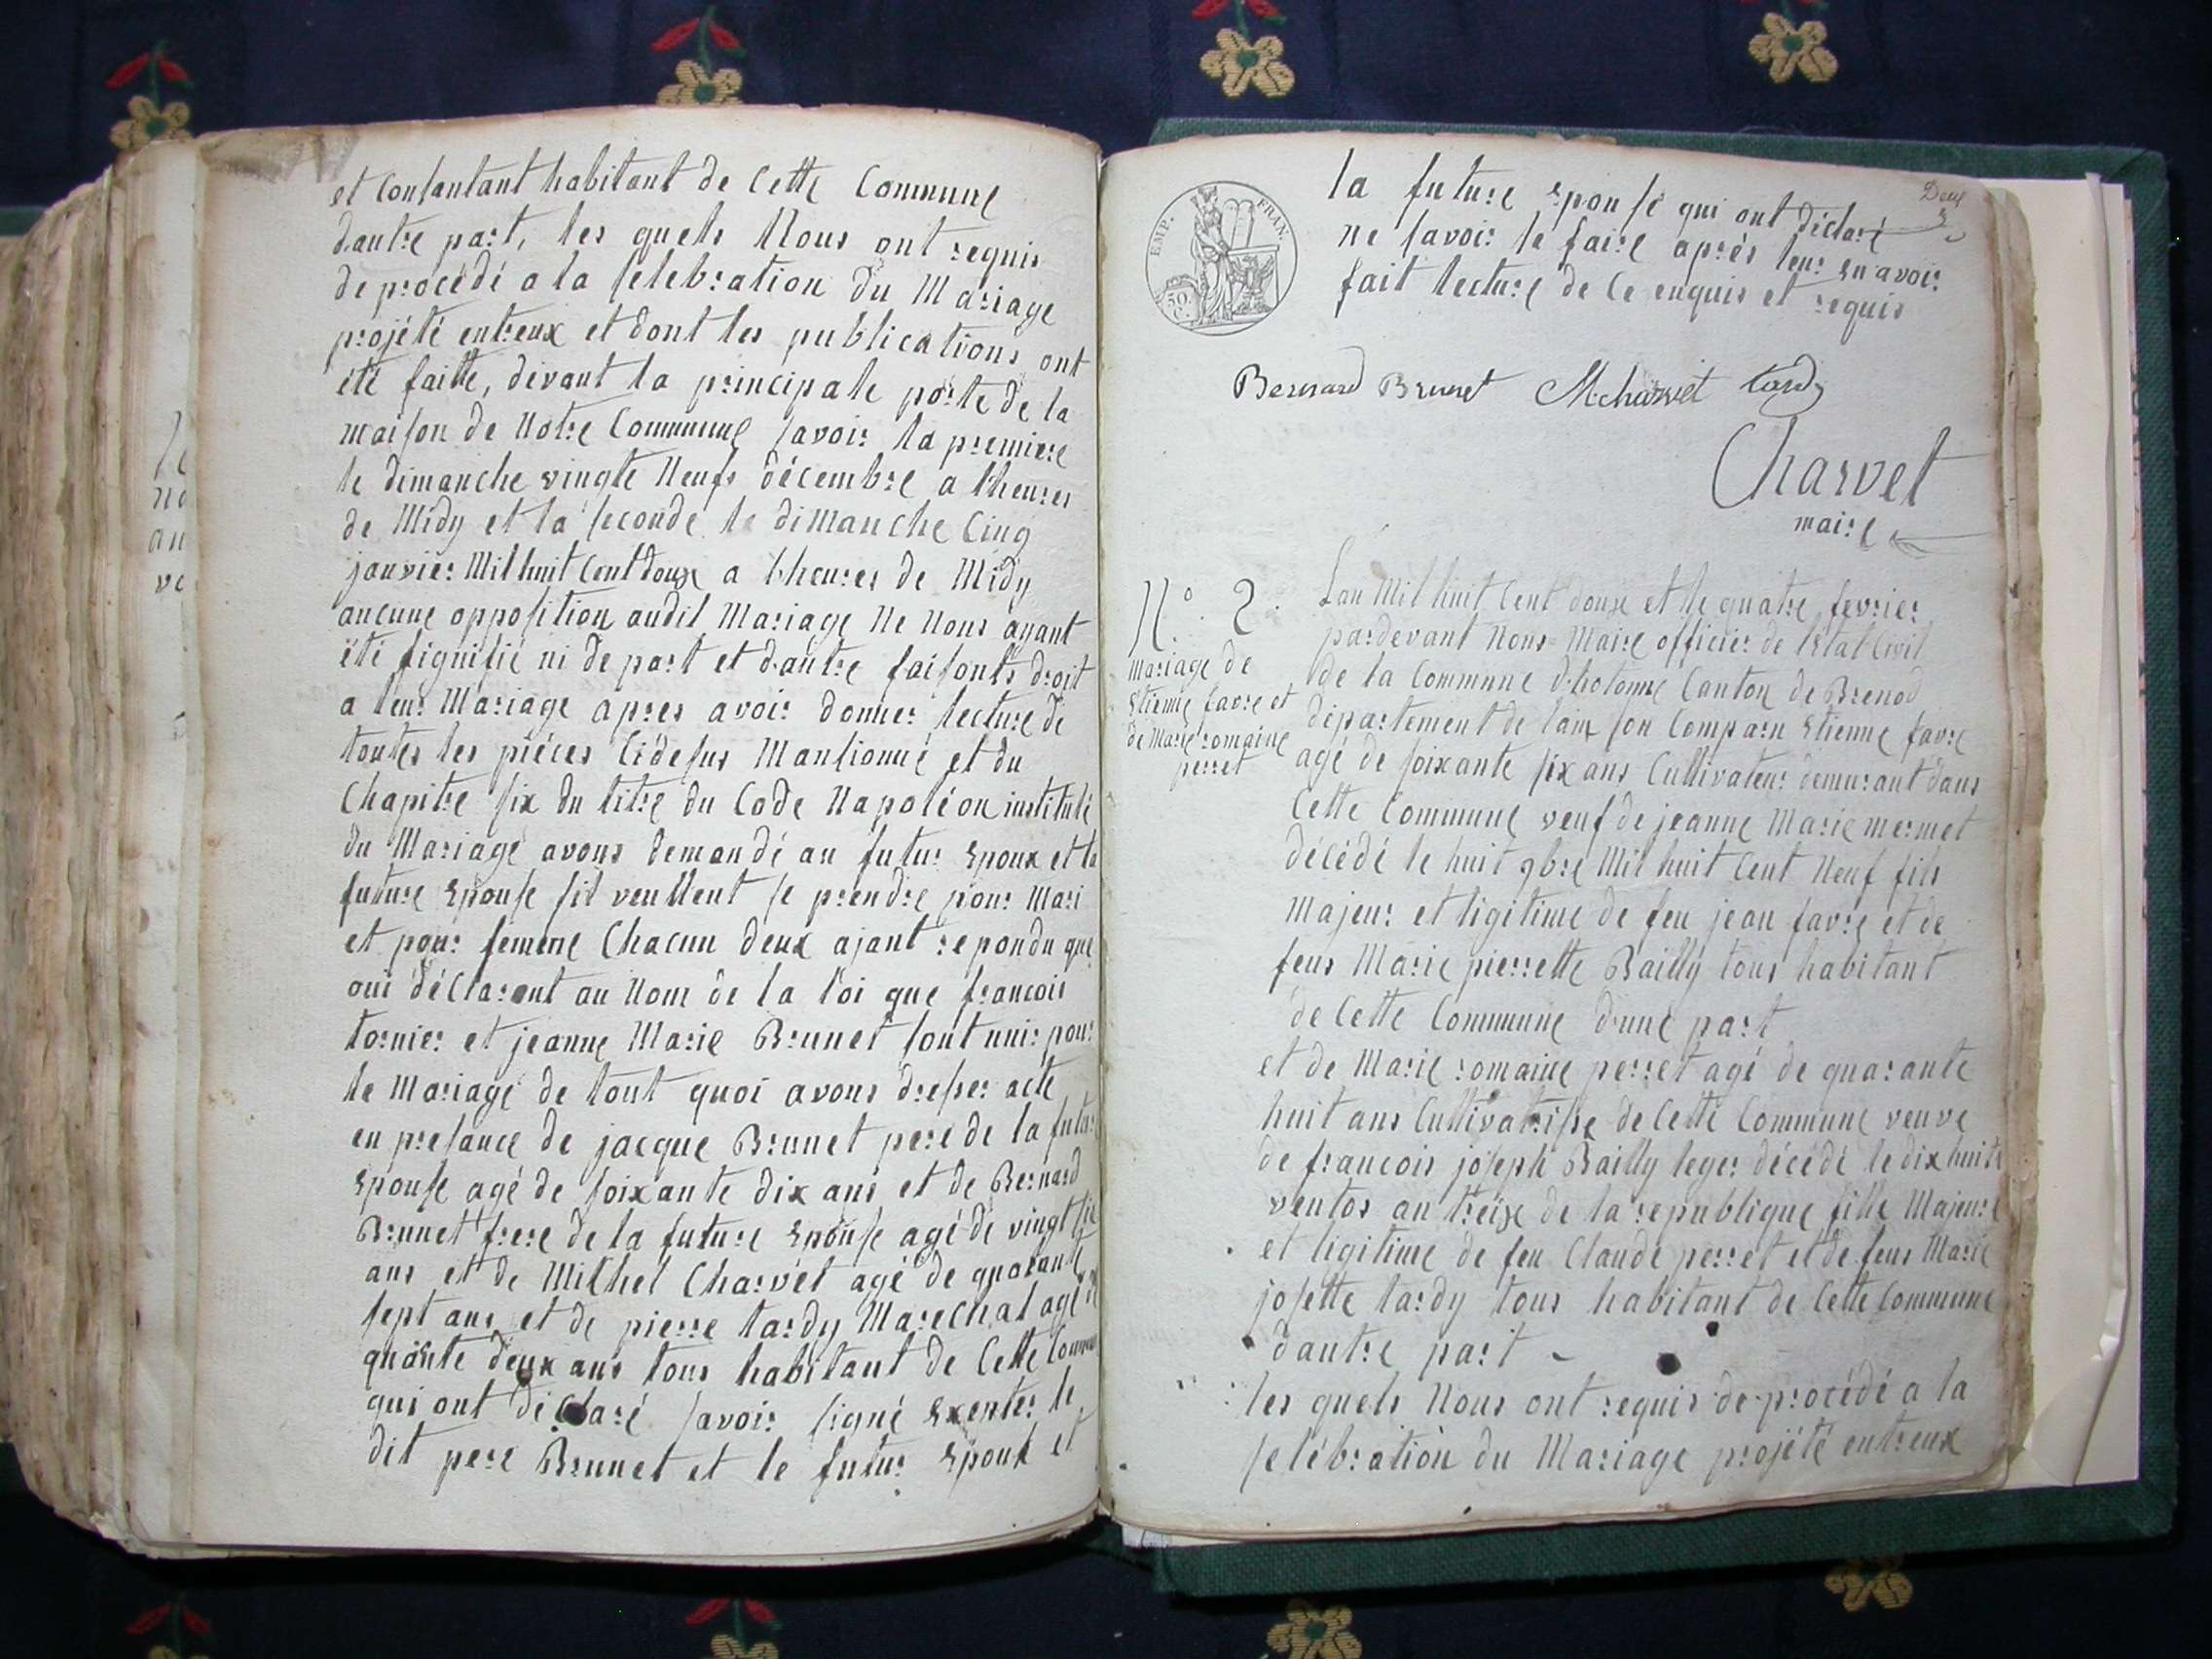 et Consantant habitant de Cette Commune
dautre part, les quels Nous ont requis
de procédé a la selebration du Mariage
projété entreux et dont les publications ont
été faitte, devant la principale porte de la
maison de Notre Commune savoir la premiere
le dimanche vingte Neufs décembre a lheures
de Midy et la seconde le dimanche Cinq
janvier Mil huit Cent douze a lheures de Midy
aucune opposition audit Mariage Ne Nous ayant
été signifié ni de part et dautre faisonts droit
a leur Mariage apres avoir donner lecture de
toutes les piéces Cidesus Mansionné et du
Chapitre six du titre du Code Napoléon institulé
du Mariage avons demandé au futur Epoux et la
future Epouse sil veullent se prendre pour Mari
et pour femme Chacun deux ajant repondu que
oui déclaront au Nom de la loi que francois
tornier et jeanne Marie Brunet sont unir pour
le Mariage de tout quoi avons dresser acte
en presance de jacque Brunet pere de la future
Epouse agé de soixante dix ans et de Bernard
Brunet frere de la future Epouse agé de vingt six
ans et de Mithel Charvét agé de quarante
sept ans et de pierre tardy Marechal agé de
quarante deux ans tous habitant de Cette Commune
qui ont déclaré savoir signé Exepter le
dit pere Brunet et le futur Epoux et
Deux
la future Epouse qui ont déclaré
ne savoir le faire aprés leur En avoir
fait lecture de Ce enquis et requis
EMP. FRAN.
50. C.
Bernard Brunet M charvet tardy
Charvet
maire
N.° 2.
Mariage de
Etienne favre et
de Marie romaine
perret
Lan Mil huit Cent douze et le quatre fevrier
pardevant Nous Maire officier de lEtat Civil
de la Commune dhotonne Canton de Brenod
département de lain son Comparu Etienne favre
agé de soixante six ans Cultivateur demurant dans
Cette Commune veuf de jeanne Marie mermet
décédé le huit 9bre Mil huit Cent Neuf fils
Majeur et ligitime de feu jean favre et de
feus Marie pierrette Bailly tous habitant
de Cette Commune dune part
et de Marie romaine perret agé de quarante
huit ans Cultivatrisse de Cette Commune veuve
de francois joseph Bailly leger décédé le dix huits
ventos an treize de la republique fille Majeure
et ligitime de feu Claude perret et de feus Marie
josette tardy tous habitant de Cette Commune
dautre part
les quels Nous ont requis de procédé a la
selébration du Mariage projété entreux